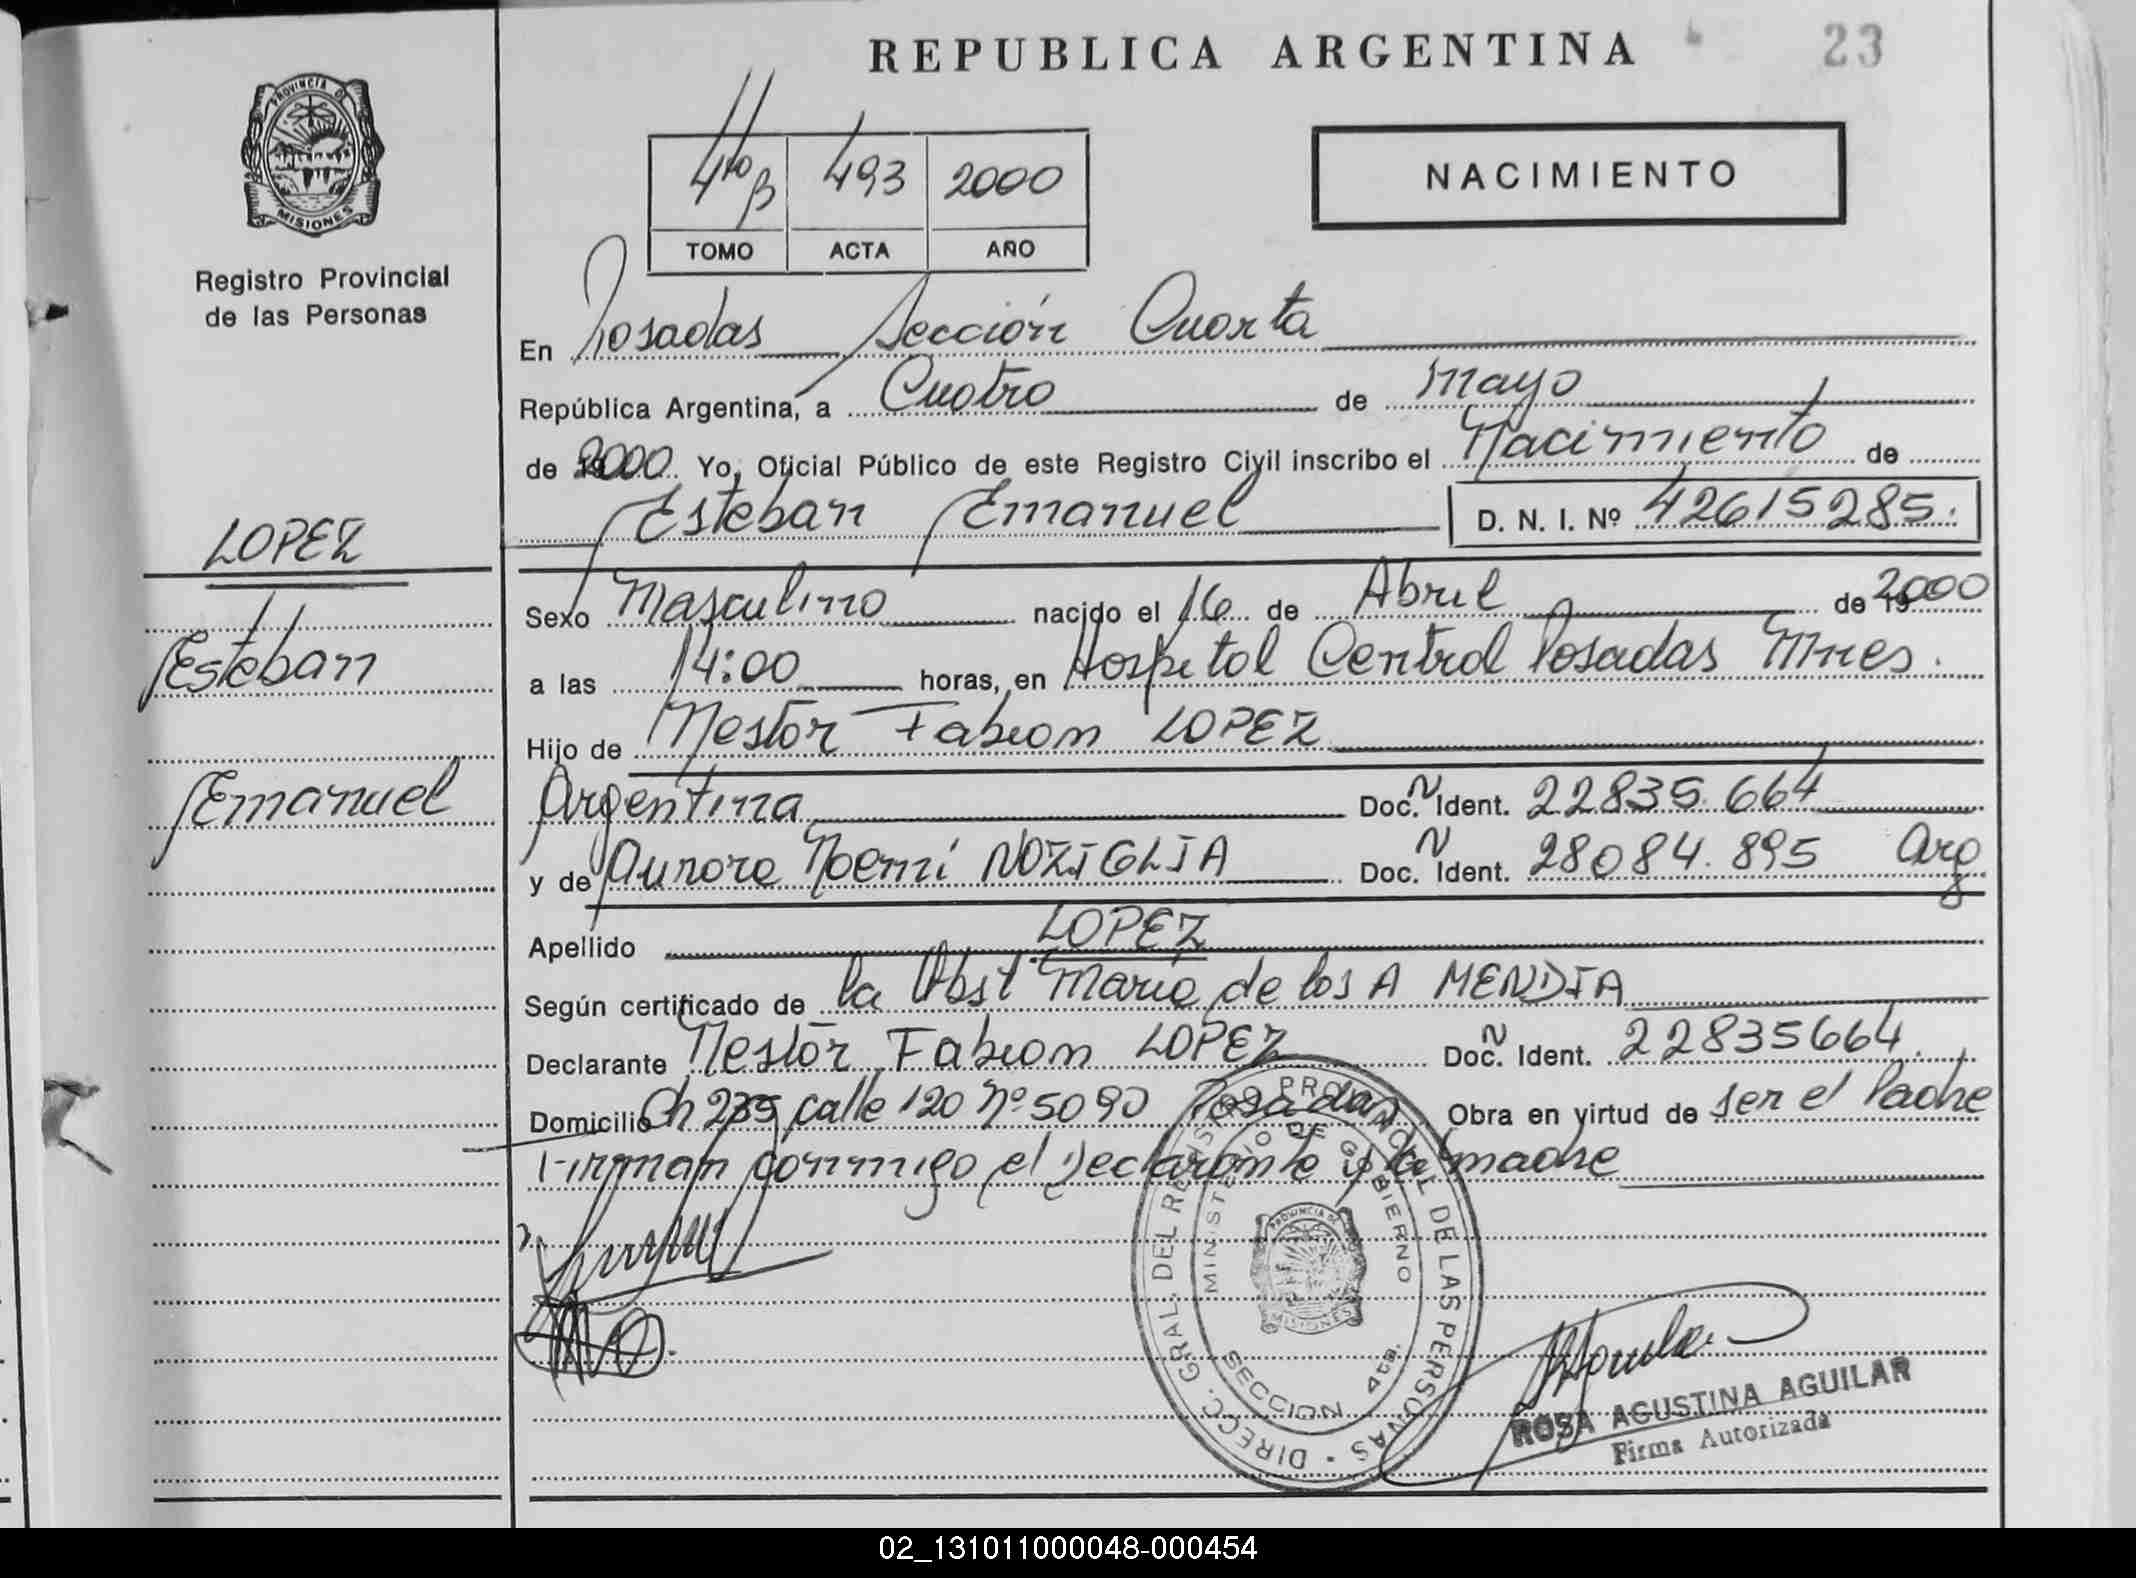 REPUBLICA ARGENTINA
23
PROVINCIA DE
MISIONES
Registro Provincial
de las Personas
4to B 493 2000
TOMO ACTA AÑO
NACIMIENTO
En Posadas Sección Cuarta
República Argentina, a Cuatro de Mayo
de 2000 Yo, Oficial Público de este Registro Civil inscribo el Nacimiento de
Esteban Emanuel D. N. I. Nº 42615285.
LOPEZ
Esteban
Emanuel
Sexo Masculino nacido el 16 de Abril de 2000
a las 14:00 horas, en Hospital Central Posadas Mnes.
Hijo de Nestor Fabian LOPEZ
Argentina Doc. N Ident. 22835.664
y de Aurora Noemí NOZIGLIA Doc. N Ident. 28084.895 Arg
Apellido LOPEZ
Según certificado de la Obst Maria de los A MENDIA
Declarante Nestor Fabian LOPEZ Doc. N Ident. 22835664.
Domicilio Ch 239 calle 120 Nº 5090 Posadas Obra en virtud de ser el Padre
Firman conmigo el Declarante y la madre
DIRECC. GRAL. DEL REGISTRO PROVINCIAL DE LAS PERSONAS
MINISTERIO DE GOBIERNO
PROVINCIA DE
MISIONES
SECCION 4ta.
ROSA AGUSTINA AGUILAR
Firma Autorizada
02_131011000048-000454